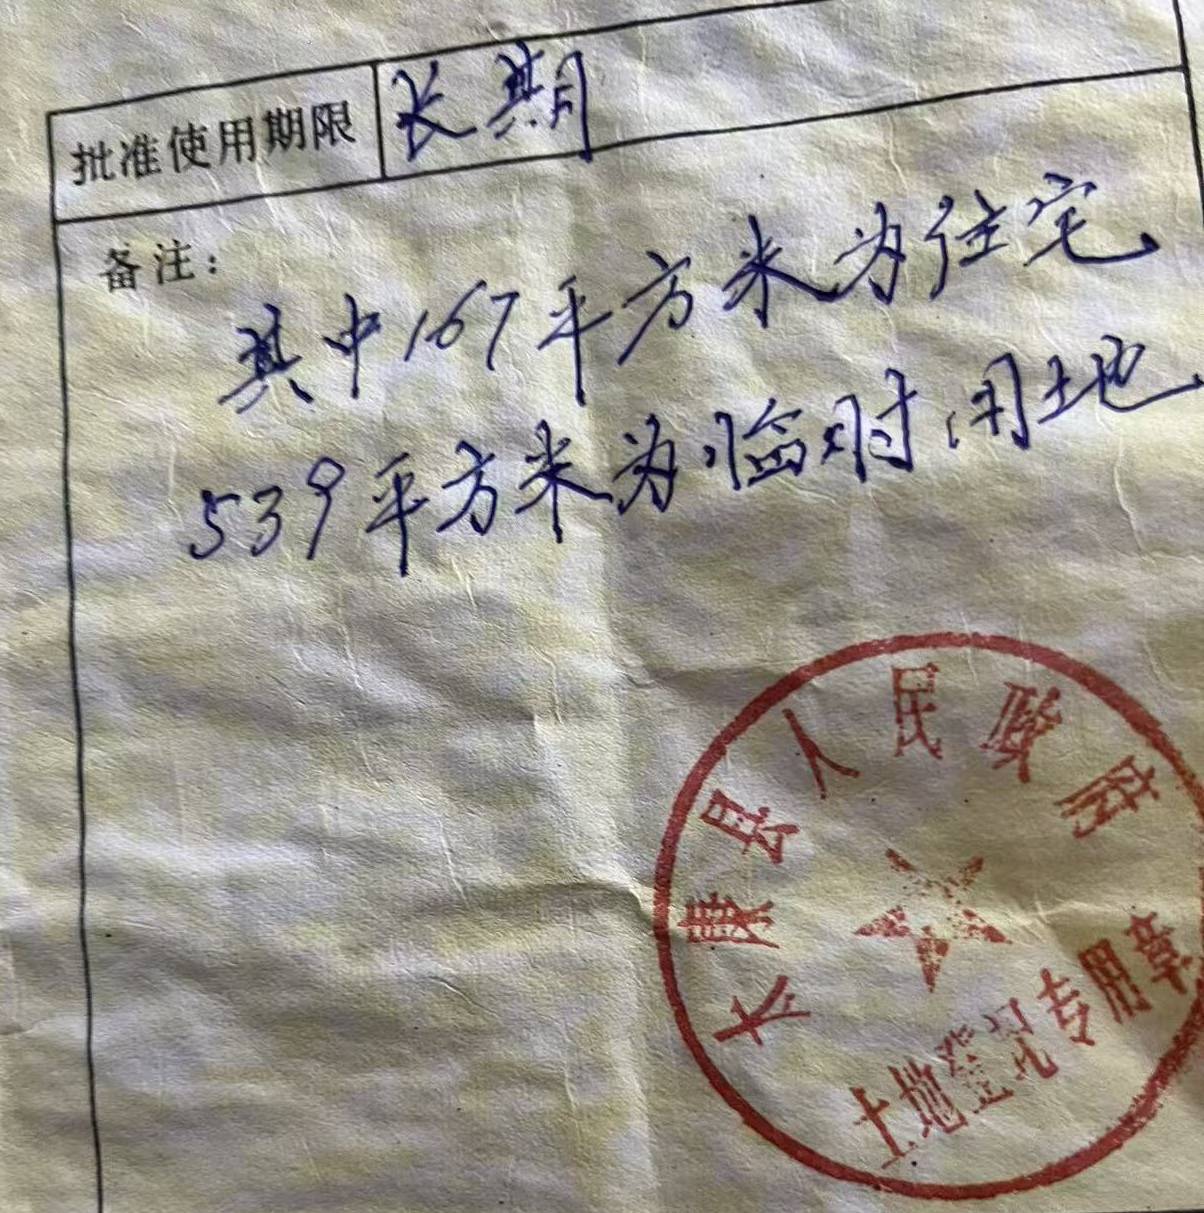 批准使用期限 长期
备注：
其中167平方米为住宅
539平方米为临时用地
太康县人民政府
土地登记专用章